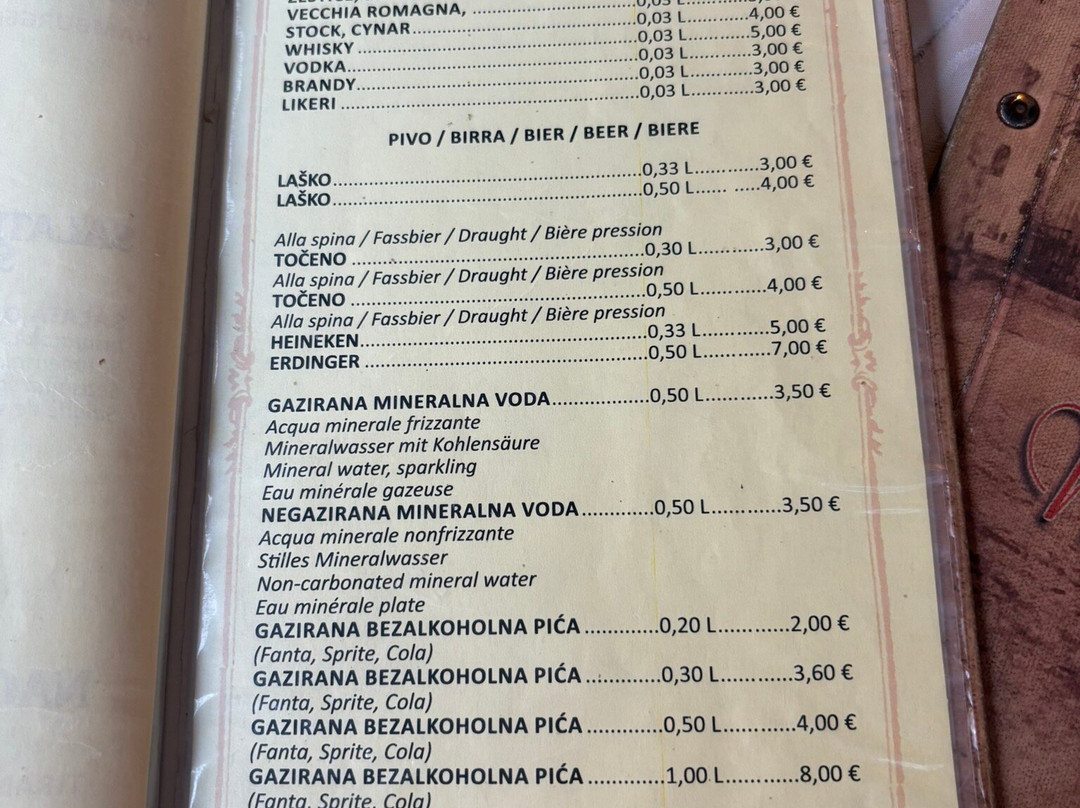 VECCHIA ROMAGNA, ........................0,03 L
STOCK, CYNAR........................0,03 L...........4,00 €
WHISKY ........................0,03 L...........5,00 €
VODKA........................0,03 L...........3,00 €
BRANDY........................0,03 L...........3,00 €
LIKERI ........................0,03 L...........3,00 €
PIVO / BIRRA / BIER / BEER / BIERE
LAŠKO........................0,33 L...........3,00 €
LAŠKO........................0,50 L...... .....4,00 €
Alla spina / Fassbier / Draught / Bière pression
TOČENO ........................0,30 L...........3,00 €
Alla spina / Fassbier / Draught / Bière pression
TOČENO ........................0,50 L...........4,00 €
Alla spina / Fassbier / Draught / Bière pression
HEINEKEN........................0,33 L...........5,00 €
ERDINGER ........................0,50 L...........7,00 €
GAZIRANA MINERALNA VODA................0,50 L...........3,50 €
Acqua minerale frizzante
Mineralwasser mit Kohlensäure
Mineral water, sparkling
Eau minérale gazeuse
NEGAZIRANA MINERALNA VODA............0,50 L...........3,50 €
Acqua minerale nonfrizzante
Stilles Mineralwasser
Non-carbonated mineral water
Eau minérale plate
GAZIRANA BEZALKOHOLNA PIĆA ............0,20 L...........2,00 €
(Fanta, Sprite, Cola)
GAZIRANA BEZALKOHOLNA PIĆA ............0,30 L...........3,60 €
(Fanta, Sprite, Cola)
GAZIRANA BEZALKOHOLNA PIĆA ............0,50 L...........4,00 €
(Fanta, Sprite, Cola)
GAZIRANA BEZALKOHOLNA PIĆA ............1,00 L...........8,00 €
(Fanta, Sprite, Cola)